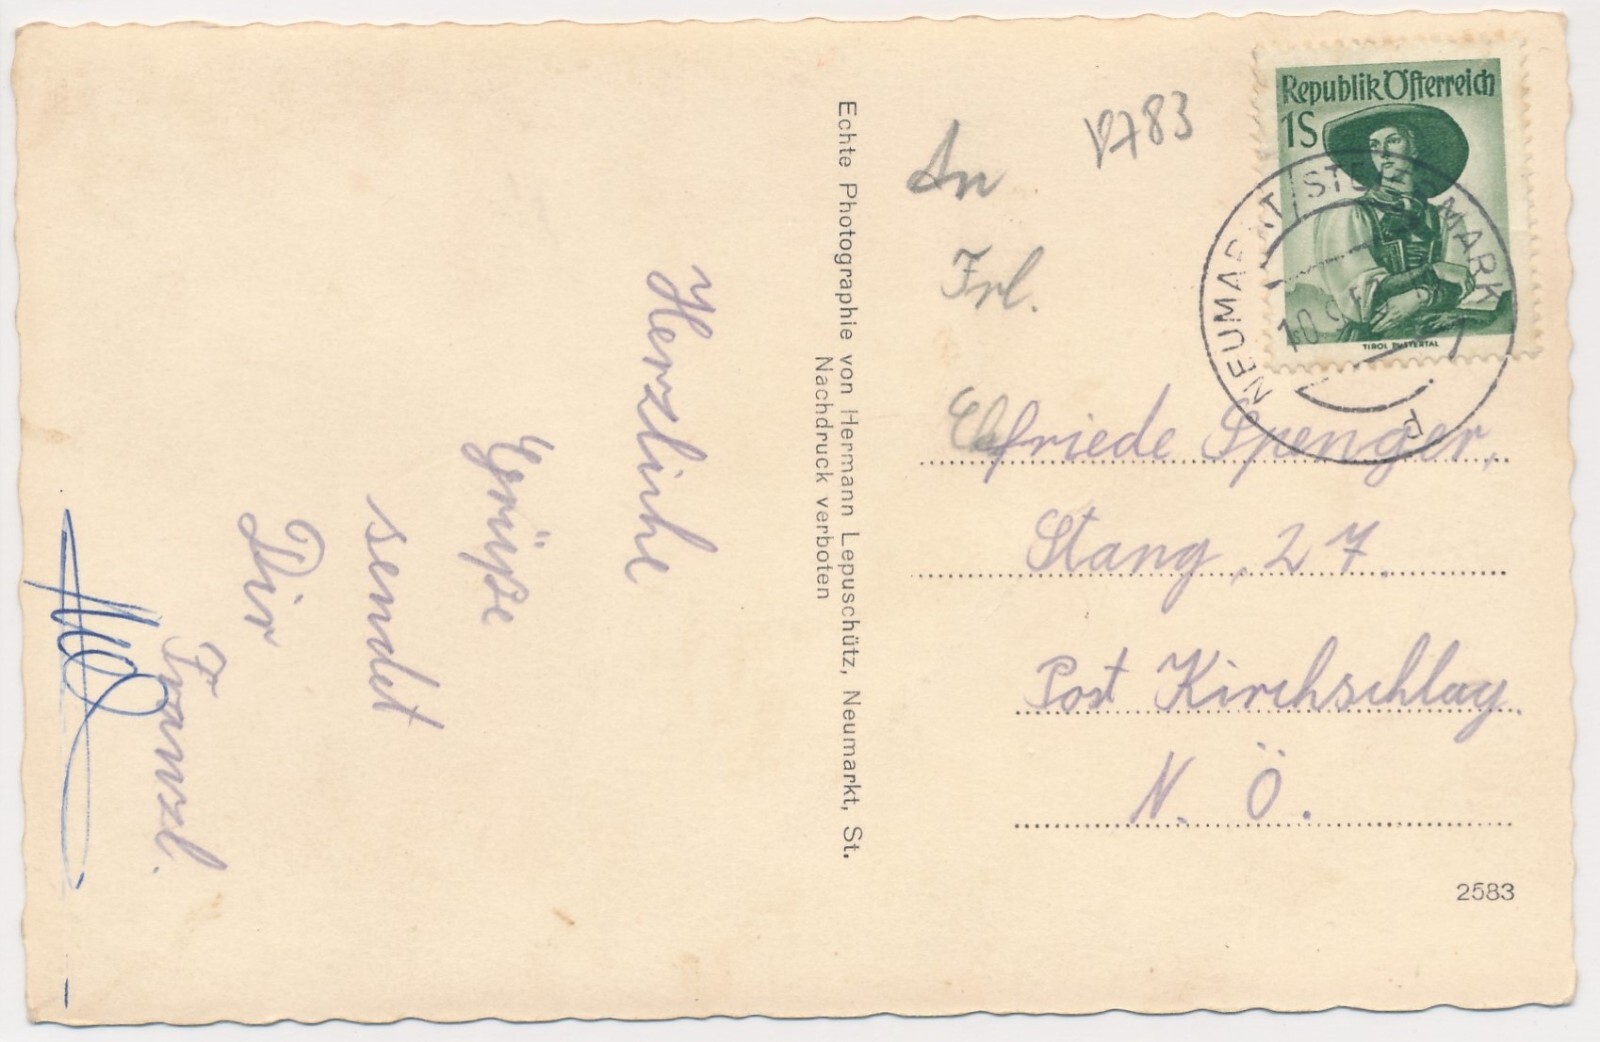 Herzliche
Grüße
sendet
Dir
Franzl.
Echte Photographie von Hermann Lepuschütz, Neumarkt, St.
Nachdruck verboten
An
Frl.
Elfriede Spenger,
Stang, 27.
Post Kirchschlag
N. Ö.
2583
Republik Österreich
1S
TIROL PUSTERTAL
NEUMARKT STEIERMARK